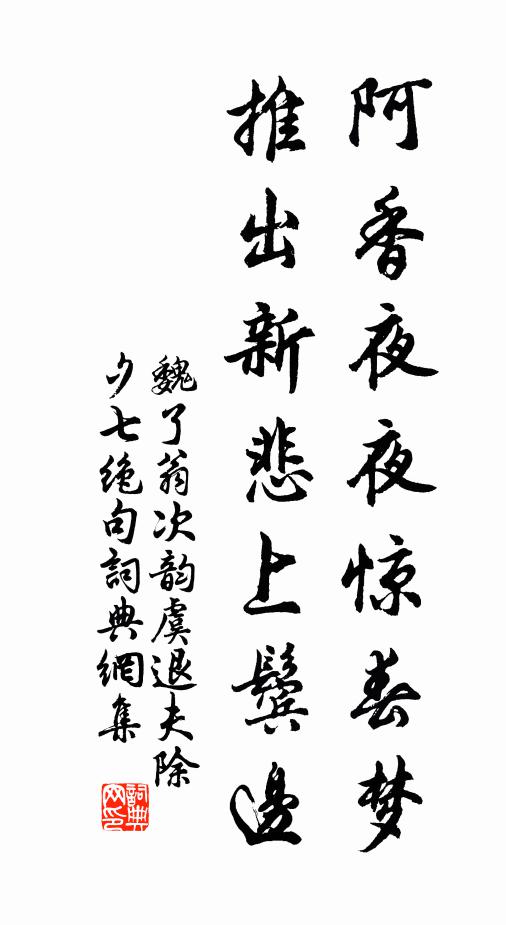 阿香夜夜惊春梦
推出新悲上鬓邊
魏了翁次韵虞退夫除
夕七绝句詞典網集
詞典
网印